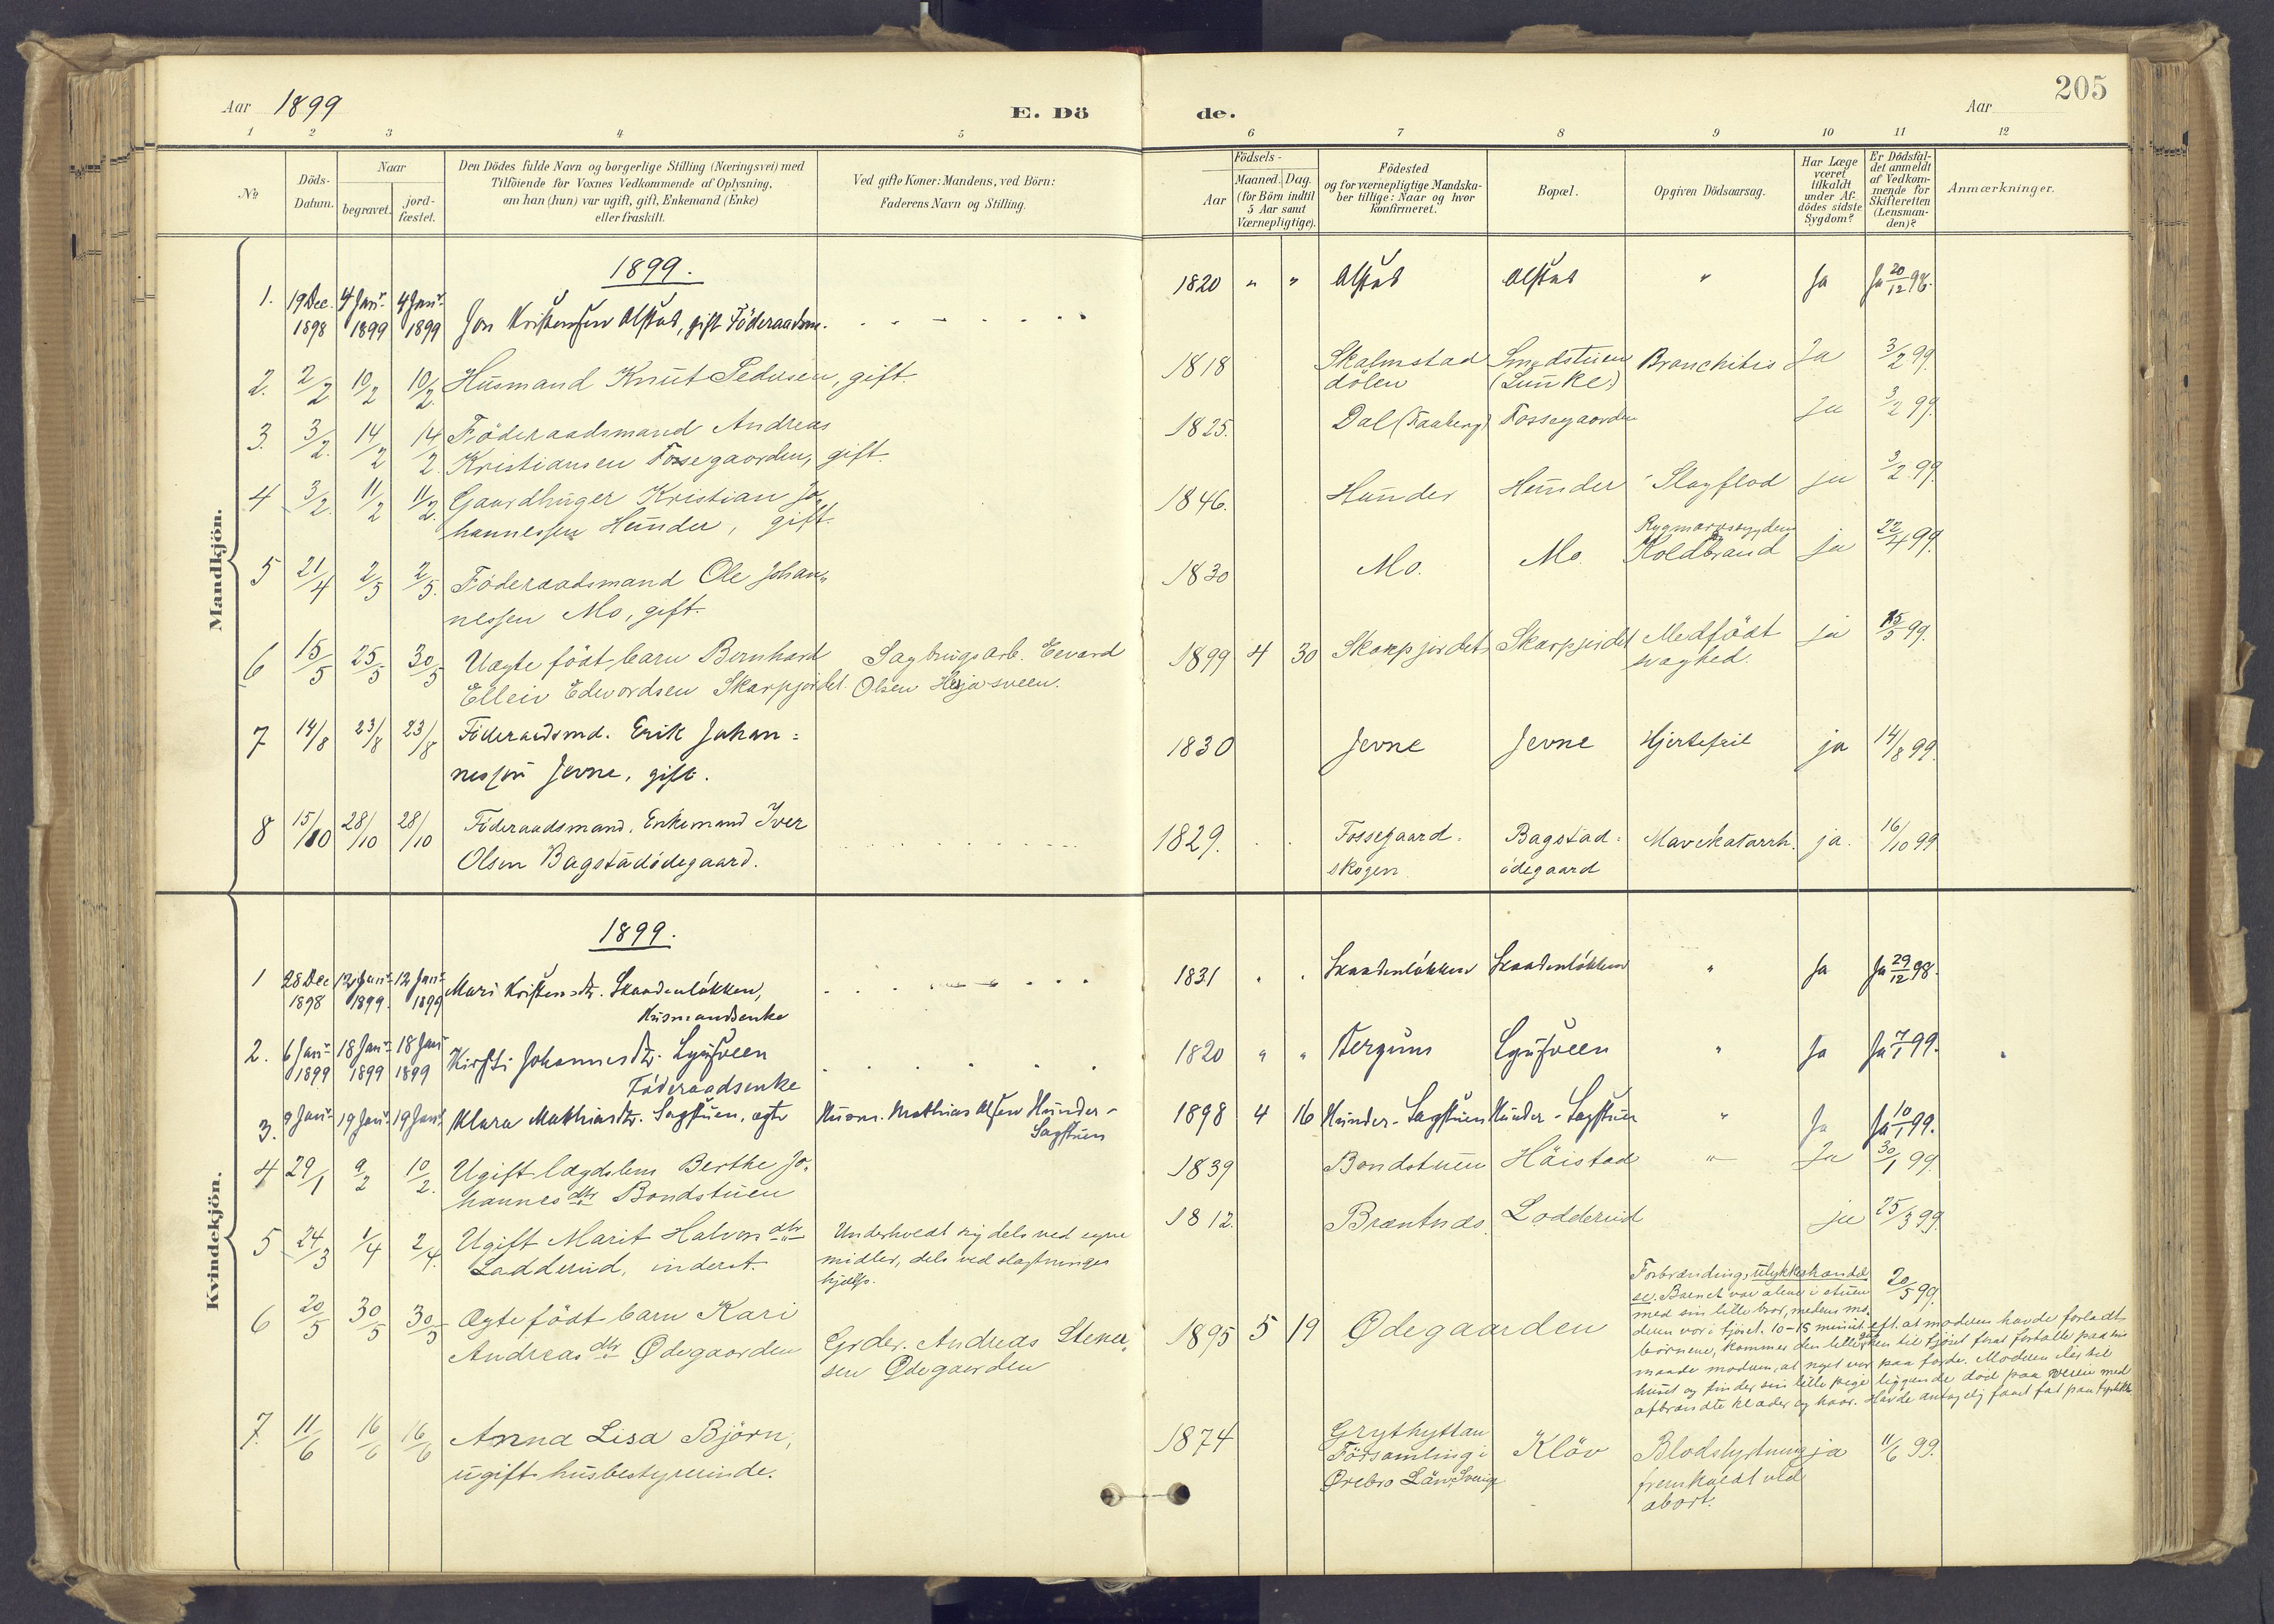 205
Aar 1899 E. Dö de. Aar
1 2 3 4 5 6 7 8 9 10 11 12
No
Döds-Datum.
Naar
begravet.
jord-fæstet.
Den Dödes fulde Navn og borgerlige Stilling (Næringsvei) med
Tilföiende for Voxnes Vedkommende af Oplysning,
om han (hun) var ugift, gift, Enkemand (Enke)
eller fraskilt.
Ved gifte Koner: Mandens, ved Börn:
Faderens Navn og Stilling.
Födsels-
Aar
Maaned. Dag.
(for Börn indtil
5 Aar samt
Værnepligtige).
Födested
og for værnepligtige Mandska-
ber tillige: Naar og hvor
konfirmeret.
Bopæl.
Opgiven Dödsaarsag.
Har Læge
været
tilkaldt
under Af-
dödes sidste
Sygdom?
Er Dödsfal-
det anmeldt
af Vedkom-
mende for
Skifteretten
(Lensman-
den)?
Anmærkninger.
Mandkjön.
1899.
1. 19 Dec. 4 Janr. 4 Janr. 1820 " " Alstad Alstad " Ja Ja 20/12 98.
1898 1899 1899 Jon Kristensen Alstad, gift Föderaadsm.
2. 2/2 10/2 10/2. Husmand Knut Pedersen, gift. 1818 Skalmstad Smedstuen Bronchitis Ja 3/2 99.
dölen (Lunke)
3. 3/2. 14/2 14/2. Föderaadsmand Andreas 1825. Dal (Faaberg) Fossegaarden Ja 3/2 99.
Kristiansen Fossegaarden, gift.
4 3/2. 11/2 11/2. Gaardbruger Kristian Jo- 1846. Hunder Hunder Slagflod ja 3/2 99.
hannessen Hunder, gift.
5 21/4 2/5 2/5. Föderaadsmand Ole Johan- 1830 Mo. Mo Rygmarvssygdom
Koldbrand ja 22/4 99.
nessen Mo, gift.
6 15/5 25/5 30/5 Uægte födt barn Bernhard Sagbrugsarb. Evard 1899 4 30 Skarpjordet Skarpjordet Medfödt ja 15/5 99.
Elleiv Edvardsen Skarpjordet. Olsen Hejasveen. svaghed.
7 14/8 23/8 23/8 Föderaadsmd. Erik Johan= 1830 Jevne Jevne Hjertefeil ja 14/8 99.
nessen Jevne, gift.
8 15/10 28/10 28/10 Föderaadsmand, Enkemand Iver 1829. Fossegaard= Bagstad= Mavekatarrh. ja. 16/10 99
Olsen Bagstadödegaard. skogen ödegaard
Kvindekjön.
1899.
1 28 Dec 12 Janr. 12 Janr. Mari Kristensdtr. Skaadenlökken, 1831 " " Skaadenlökken Skaadenlökken " Ja Ja 29/12 98.
1898 1899. 1899 Husmandsenke
2. 6 Janr. 18 Janr. 18 Janr Kirsti Johannesdtr. Lysveen 1820 " " Bergum Lysveen " Ja Ja 7/1 99.
1899 1899 1899 Föderaadsenke
3. 9 Janr. 19 Janr. 19 Janr. Klara Mathiasdtr. Sagstuen, ægte Husm. Mathias Olsen Hunder- 1898 4 16 Hunder-Sagstuen Hunder-Sagstuen " Ja Ja 10/1 99.
Sagstuen
4 29/1 9/2 10/2. Ugift lægdslem Berthe Jo- 1839 Bondstuen Häistad " Ja 30/1 99.
hannesdtr Bondstuen
5 24/3 1/4 2/4. Ugift Marit Halvorsdtr Underholdt sig dels ved egne 1812. Bræntnæs Lodderud ja 25/3 99
Ladderud, inderst. midler, dels ved slægtninges
hjælp.
6 20/5 30/5 30/5 Ægte födt barn Kari 1895 5 19 Ødegaarden 20/5 99.
Andreasdtr Ødegaarden Grder. Andreas Stener-
sen Ødegaarden
Forbrænding, ulykkeshændel
se. Barnet var alene i stuen
med sin lille bror, medens mo-
deren var i fjöset. 10-15 minut. eft. at moderen havde forladt
börnene, kommer den lille gutten til fjöset forat fortælle paa sin
maade moderen, at noget var paa færde. Moderen iler til
huset og finder sin lille pige liggende död paa veien med
afbrændte klæder og haar. Havde antagelig faaet fat paa fyrstikker
7. 11/6 16/6 16/6 Anna Lisa Björn, 1874 Grythyttan Klöv Blodstyrtning ja 11/6 99.
ugift husbestyrerinde. Församling i fremkaldt ved
Örebro Län, Sverige abort.